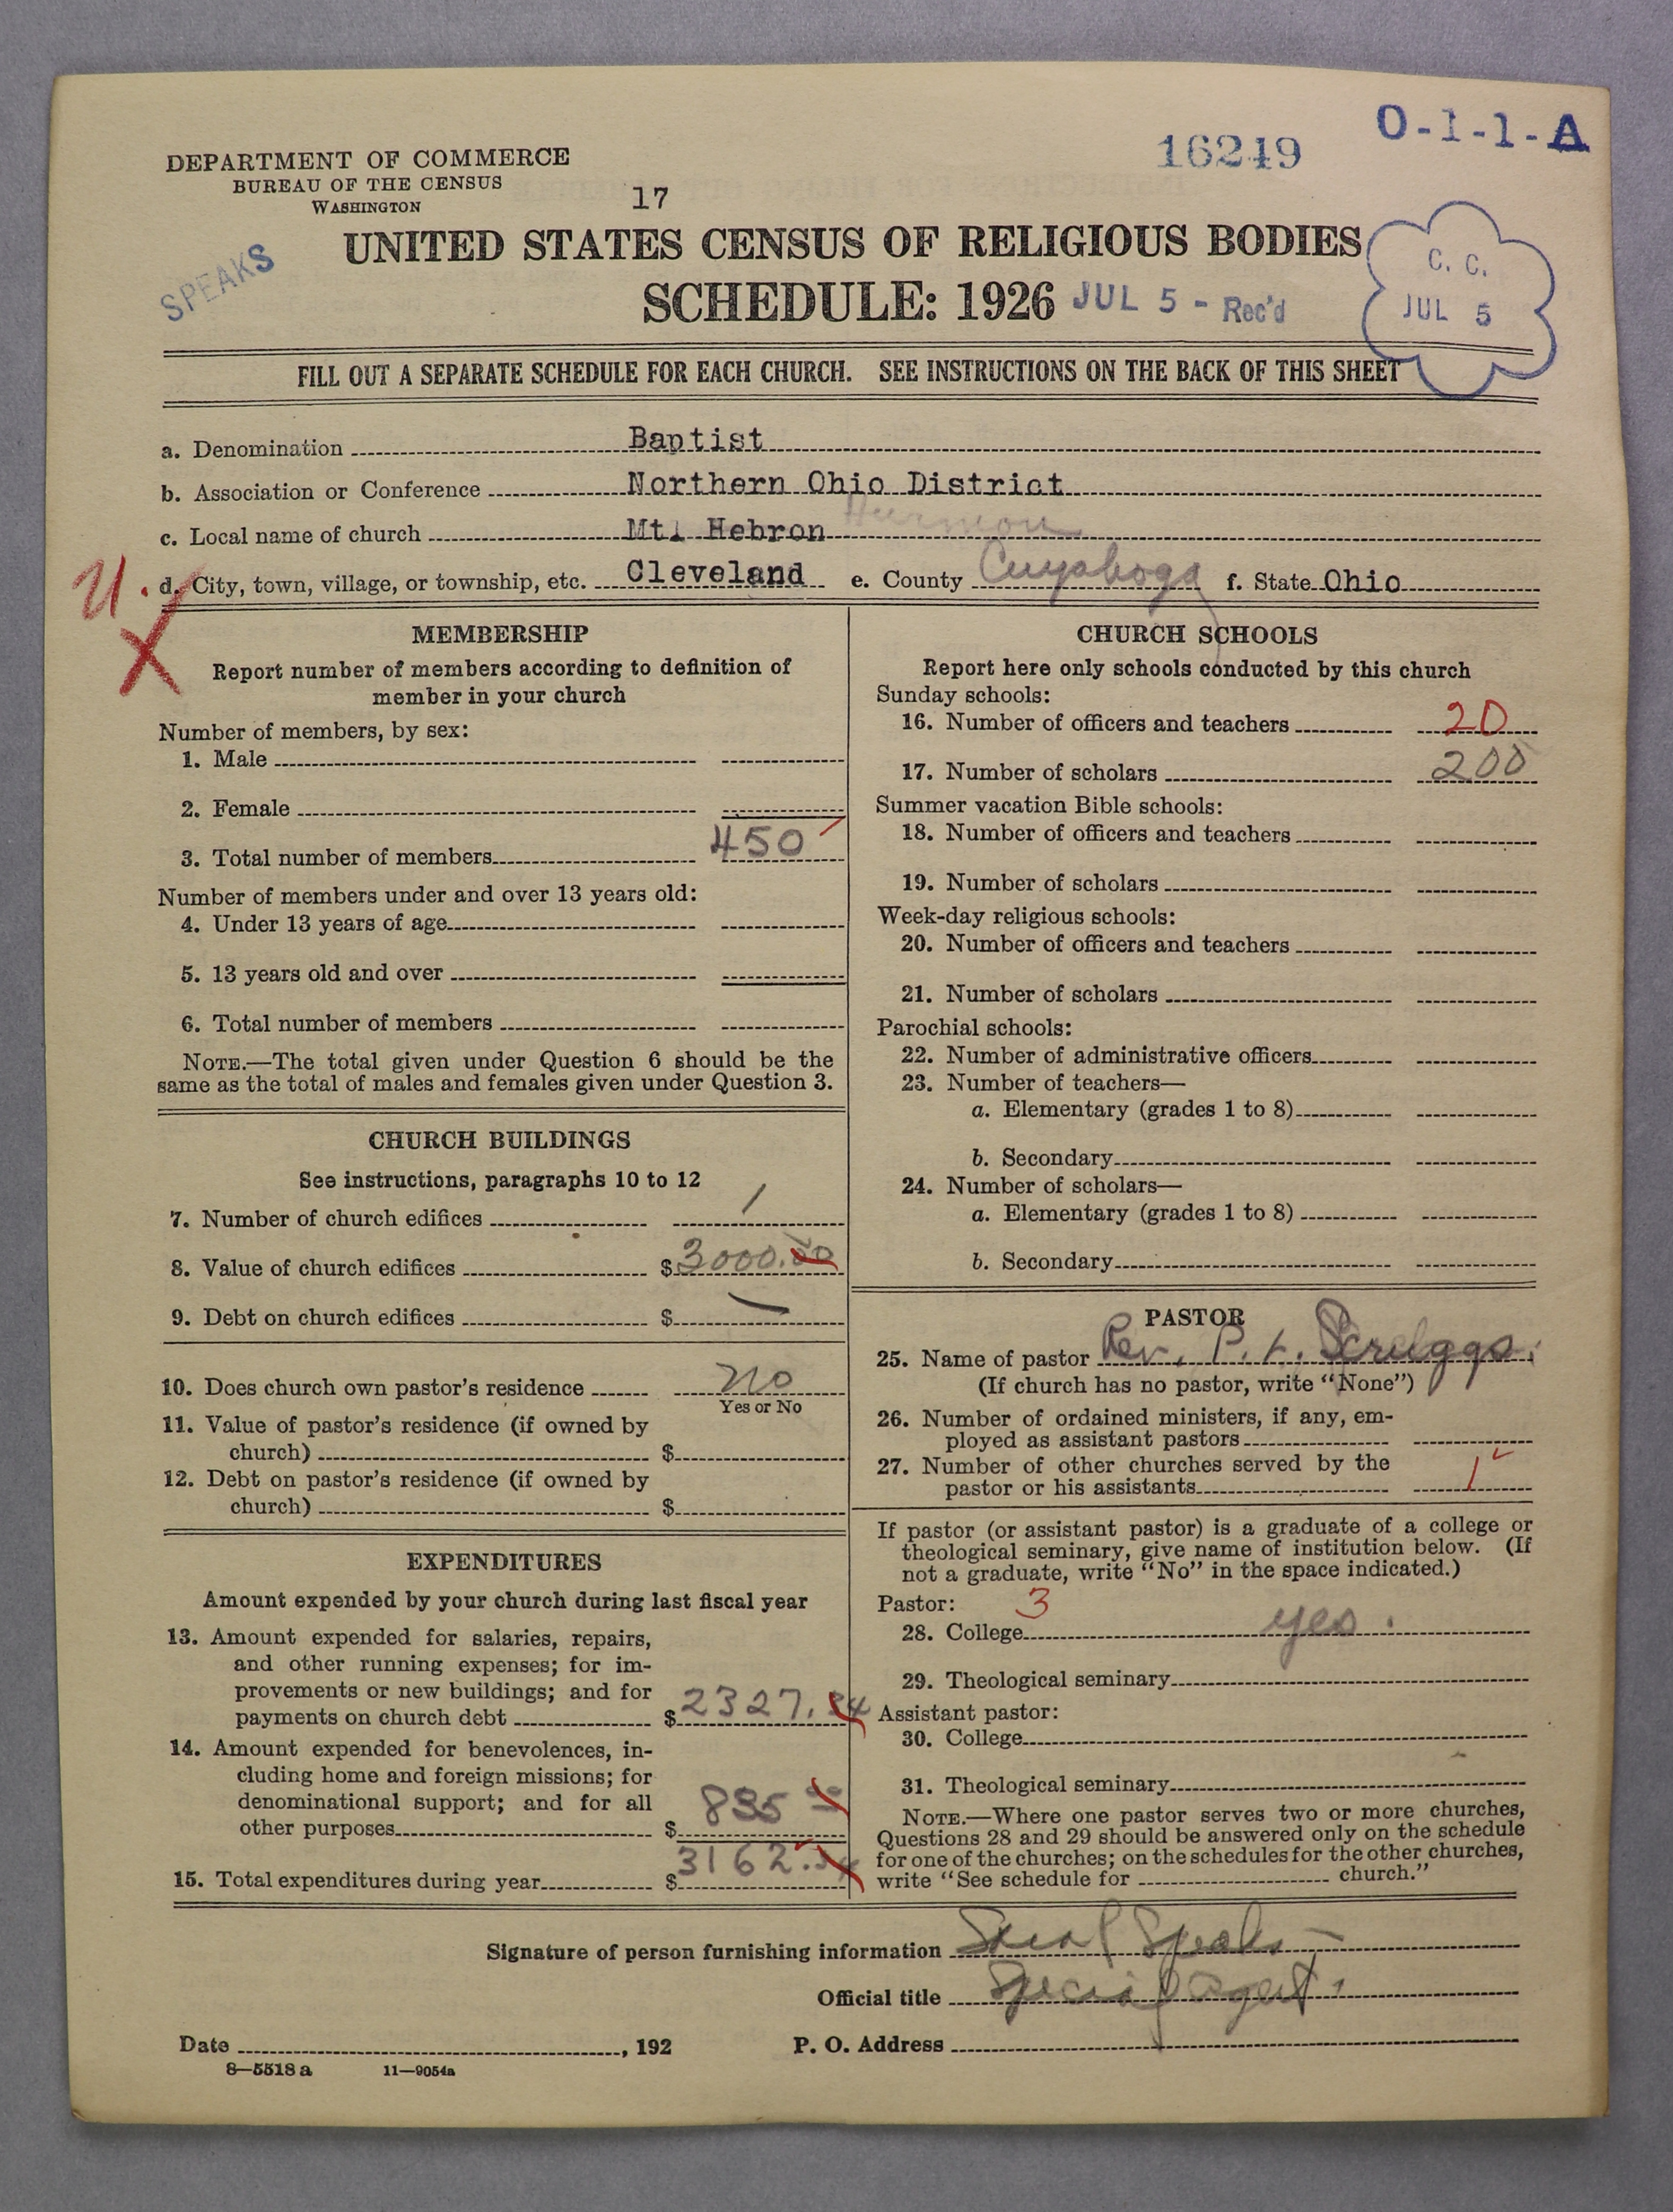 O-1-1-A
16249
DEPARTMENT OF COMMERCE
BUREAU OF THE CENSUS
WASHINGTON
17
SPEAKS
UNITED STATES CENSUS OF RELIGIOUS BODIES
SCHEDULE: 1926 JUL 5 - Rec'd
C. C.
JUL 5
FILL OUT A SEPARATE SCHEDULE FOR EACH CHURCH. SEE INSTRUCTIONS ON THE BACK OF THIS SHEET
a. Denomination Baptist
b. Association or Conference Northern Ohio District
c. Local name of church Mt. Hebron Hermon
U. d. City, town, village, or township, etc. Cleveland e. County Cuyahoga f. State Ohio
X
MEMBERSHIP
Report number of members according to definition of
member in your church
Number of members, by sex:
1. Male
2. Female
3. Total number of members 450
Number of members under and over 13 years old:
4. Under 13 years of age
5. 13 years old and over
6. Total number of members
NOTE.—The total given under Question 6 should be the
same as the total of males and females given under Question 3.
CHURCH BUILDINGS
See instructions, paragraphs 10 to 12
7. Number of church edifices 1
8. Value of church edifices $3000.00
9. Debt on church edifices $ —
10. Does church own pastor's residence no
Yes or No
11. Value of pastor's residence (if owned by
church) $
12. Debt on pastor's residence (if owned by
church) $
EXPENDITURES
Amount expended by your church during last fiscal year
13. Amount expended for salaries, repairs,
and other running expenses; for im-
provements or new buildings; and for
payments on church debt $2327.34
14. Amount expended for benevolences, in-
cluding home and foreign missions; for
denominational support; and for all
other purposes $ 835
15. Total expenditures during year $3162.34
CHURCH SCHOOLS
Report here only schools conducted by this church
Sunday schools:
16. Number of officers and teachers 20
17. Number of scholars 200
Summer vacation Bible schools:
18. Number of officers and teachers
19. Number of scholars
Week-day religious schools:
20. Number of officers and teachers
21. Number of scholars
Parochial schools:
22. Number of administrative officers
23. Number of teachers—
a. Elementary (grades 1 to 8)
b. Secondary
24. Number of scholars—
a. Elementary (grades 1 to 8)
b. Secondary
PASTOR
25. Name of pastor Rev. P. L. Scruggs.
(If church has no pastor, write "None")
26. Number of ordained ministers, if any, em-
ployed as assistant pastors
27. Number of other churches served by the
pastor or his assistants 1
If pastor (or assistant pastor) is a graduate of a college or
theological seminary, give name of institution below. (If
not a graduate, write "No" in the space indicated.)
Pastor: 3
28. College yes.
29. Theological seminary
Assistant pastor:
30. College
31. Theological seminary
NOTE.—Where one pastor serves two or more churches,
Questions 28 and 29 should be answered only on the schedule
for one of the churches; on the schedules for the other churches,
write "See schedule for church."
Signature of person furnishing information Speaks
Official title Special Agent.
Date , 192 P. O. Address
8—5518 a 11—9054a